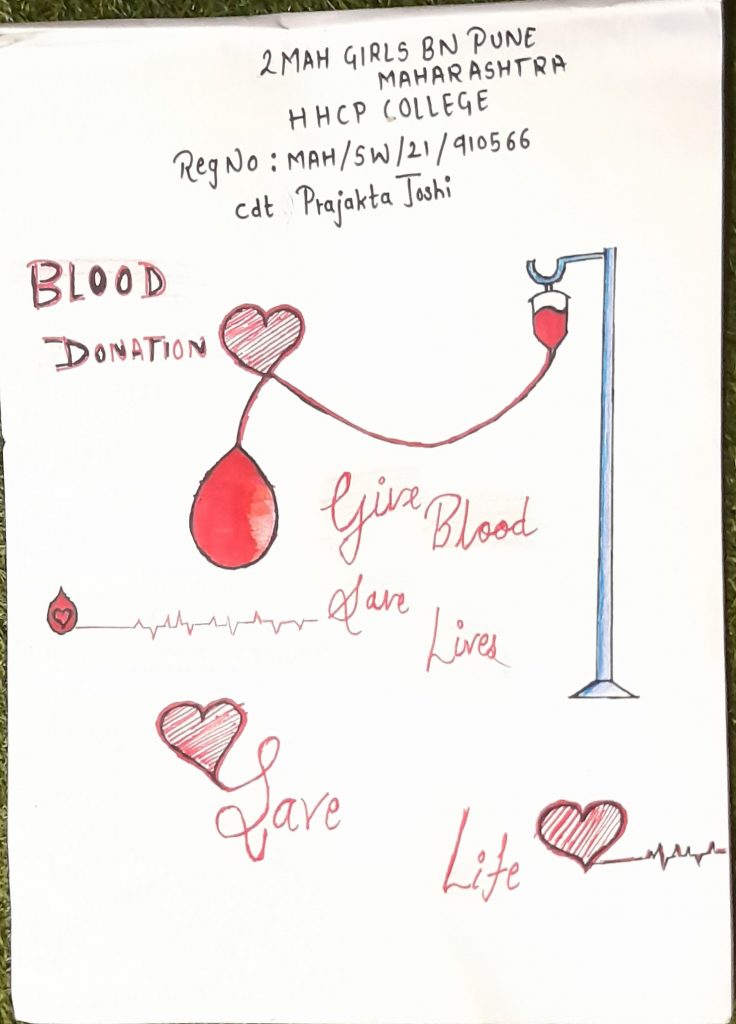 2 MAH GIRLS BN PUNE
MAHARASHTRA
HHCP COLLEGE
Reg No : MAH/SW/21/910566
cdt Prajakta Joshi
BLOOD
DONATION
Give Blood
Save
Lives
Save
Life